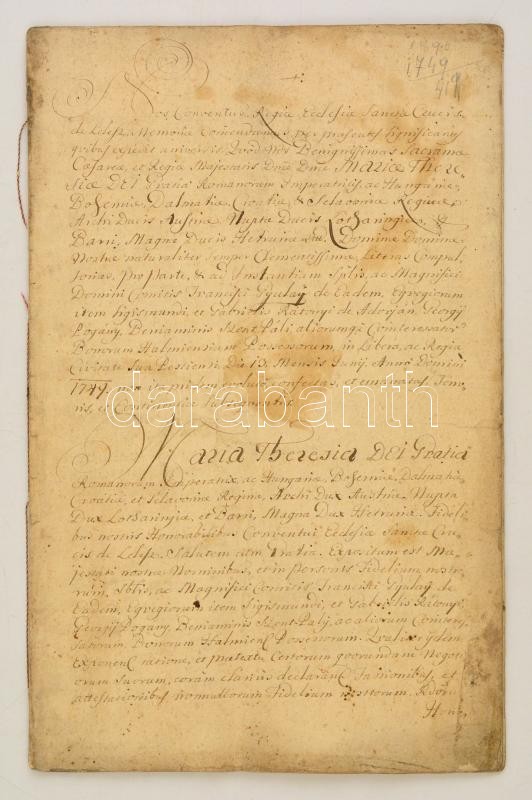 1890
1749
419
Nos Conventus Regiæ Ecclesiæ Sanctæ Crucis
de Lelesz Memoriæ Comendamus per præsentes significantes
quibus expedit universis Quod Nos Benignissimas Sacratmæ
Cæsareæ, et Regiæ Majestatis Dnæ Dnæ Mariæ There-
siæ DEI Gratia Romanorum Imperatricis, ac Hungariæ,
Bohemiæ, Dalmatiæ, Croatiæ, & Sclavoniæ Reginæ
Archi Ducis Austriæ Nupta Ducis Lotharingiæ, &
Barri, Magnæ Ducis Hetruriæ Dominæ Dominæ
Nostræ naturaliter semper Clementissimæ, Literas Compul-
sorias, pro parte, & ad Instantiam Sptlis, ac Magnifici
Domini Comitis Francisci Gyulay de Eadem, Egregiorum
item Sigismundi, et Gabrielis Katonyi de Adorján, Georgy
Pogány, Beniaminis Szent Páli aliorumqe
Bonorum Halmiensium Possessorum, in Libera, ac Regia
Civitate Sua Pestiensi, Die 12 Mensis Juny, Anno Domini
1749 confectas, et emanatas Teno-
ris, et Continentiæ
darabanth
Maria Theresia DEI Gratia
Romanorum Imperatrix, ac Hungariæ, Bohemiæ, Dalmatiæ,
Croatiæ, et Sclavoniæ Regina, Archi Dux Austriæ Nupta
Dux Lotharingiæ, et Barri, Magna Dux Hetruriæ. Fideli-
bus nostris Honorabilibus Conventui Ecclesiæ Sanctæ Cru-
cis de Lelesz Salutem et Gratia. Expositum est Ma-
jestati nostræ Nominibus, et in personis Fidelium nostro-
rum, Sptlis, ac Magnifici Comitis Francisci Gyulay de
Eadem, Egregiorum item Sigismundi, et Gabrielis Katonyi
Georgy Pogány, Beniaminis Szent-Paly, ac aliorum
Bonorum Halmiens Possessorum. Qualiter ydem
Exponens ratione, et prætextu Certorum quorundam Negoti-
orum suorum, coram declarand Fassionibus, et
attestationibus nonnullorum Fidelium nostrorum,